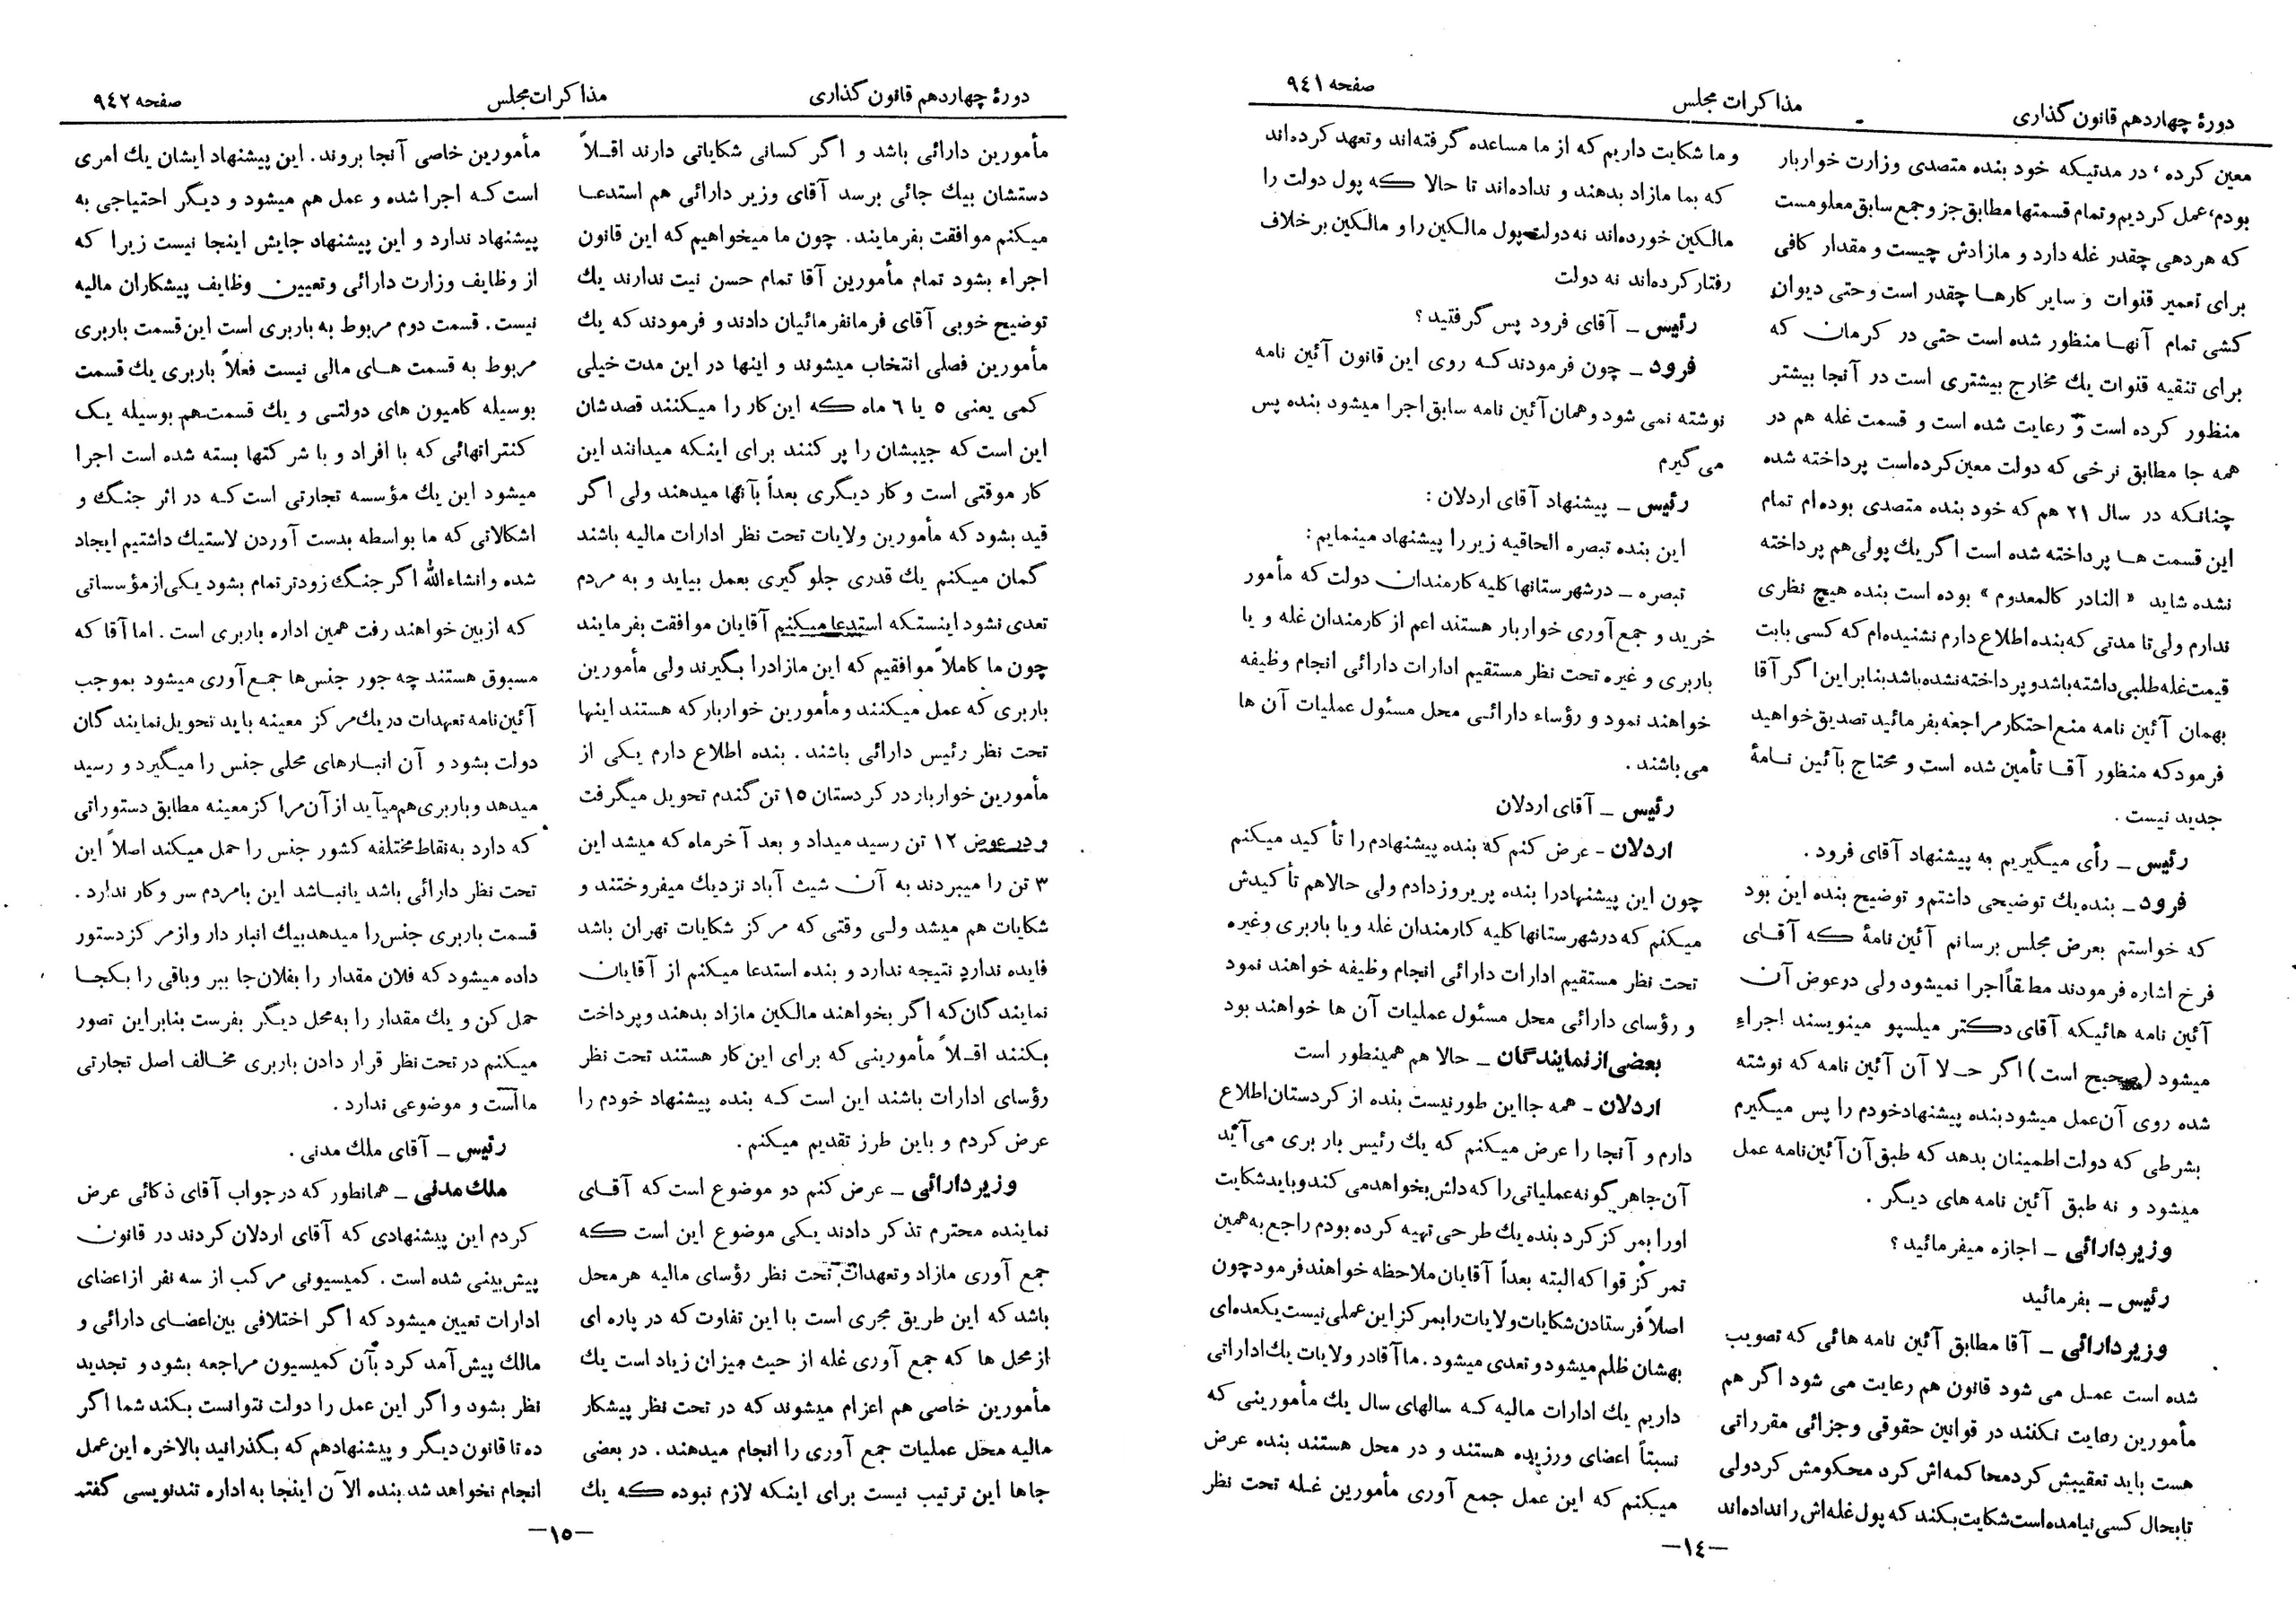 دورهٔ چهاردهم قانون گذاری
مذاکرات مجلس
صفحه ۹٤۱
معین کرده، در مدتیکه خود بنده متصدی وزارت خواربار
بودم، عمل کردیم و تمام قسمتها مطابق جز و جمع سابق معلومست
که هردهی چقدر غله دارد و مازادش چیست و مقدار کافی
برای تعمیر قنوات و سایر کارها چقدر است و حتی دیوان
کشی تمام آنها منظور شده است حتی در کرمان که
برای تنقیه قنوات یك مخارج بیشتری است در آنجا بیشتر
منظور کرده است و رعایت شده است و قسمت غله هم در
همه جا مطابق نرخی که دولت معین کرده‌است پرداخته شده
چنانکه در سال ۲۱ هم که خود بنده متصدی بوده‌ام تمام
این قسمت ها پرداخته شده است اگر یك پولی هم پرداخته
نشده شاید « النادر کالمعدوم » بوده است بنده هیچ نظری
ندارم ولی تا مدتی که بنده اطلاع دارم نشنیده‌ام که کسی بابت
قیمت غله طلبی داشته باشد و پرداخته نشده باشد بنابر این اگر آقا
بهمان آئین نامه منع احتکار مراجعه بفرمائید تصدیق خواهید
فرمود که منظور آقا تأمین شده است و محتاج بآئین نامهٔ
جدید نیست .
رئیس ـ رأی میگیریم به پیشنهاد آقای فرود .
فرود ـ بنده یك توضیحی داشتم و توضیح بنده این بود
که خواستم بعرض مجلس برسانم آئین نامهٔ که آقای
فرخ اشاره فرمودند مطلقاً اجرا نمیشود ولی در عوض آن
آئین نامه هائیکه آقای دکتر میلسپو مینویسند اجراء
میشود (صحیح است) اگر حـ لا آن آئین نامه که نوشته
شده روی آن عمل میشود بنده پیشنهاد خودم را پس میگیرم
بشرطی که دولت اطمینان بدهد که طبق آن آئین‌نامه عمل
میشود و نه طبق آئین نامه های دیگر .
وزیر دارائی ـ اجازه میفرمائید ؟
رئیس ـ بفرمائید
وزیر دارائی ـ آقا مطابق آئین نامه هائی که تصویب
شده است عمل می شود قانون هم رعایت می شود اگر هم
مأمورین رعایت نکنند در قوانین حقوقی و جزائی مقرراتی
هست باید تعقیبش کرد محاکمه‌اش کرد محکومش کرد ولی
تابحال کسی نیامده است شکایت بکند که پول غله‌اش را نداده‌اند
و ما شکایت داریم که از ما مساعده گرفته‌اند و تعهد کرده‌اند
که بما مازاد بدهند و نداده‌اند تا حالا که پول دولت را
مالکین خورده‌اند نه دولت پول مالکین را و مالکین برخلاف
رفتار کرده‌اند نه دولت
رئیس ـ آقای فرود پس گرفتید ؟
فرود ـ چون فرمودند که روی این قانون آئین نامه
نوشته نمی شود و همان آئین نامه سابق اجرا میشود بنده پس
می گیرم
رئیس ـ پیشنهاد آقای اردلان :
این بنده تبصره الحاقیه زیر را پیشنهاد مینمایم :
تبصره ـ در شهرستانها کلیه کارمندان دولت که مأمور
خرید و جمع آوری خواربار هستند اعم از کارمندان غله و یا
باربری و غیره تحت نظر مستقیم ادارات دارائی انجام وظیفه
خواهند نمود و رؤساء دارائی محل مسئول عملیات آن ها
می باشند .
رئیس ـ آقای اردلان
اردلان - عرض کنم که بنده پیشنهادم را تأکید میکنم
چون این پیشنهاد را بنده پریروز دادم ولی حالا هم تأکیدش
میکنم که در شهرستانها کلیه کارمندان غله و یا باربری و غیره
تحت نظر مستقیم ادارات دارائی انجام وظیفه خواهند نمود
و رؤسای دارائی محل مسئول عملیات آن ها خواهند بود
بعضی از نمایندگان ـ حالا هم همینطور است
اردلان - همه جا این طور نیست بنده از کردستان اطلاع
دارم و آنجا را عرض میکنم که یك رئیس باربری می آید
آن جا هر گونه عملیاتی را که دلش بخواهد می کند و باید شکایت
او را بمرکز کرد بنده یك طرحی تهیه کرده بودم راجع به همین
تمرکز قوا که البته بعداً آقایان ملاحظه خواهند فرمود چون
اصلاً فرستادن شکایات ولایات را بمرکز این عملی نیست یکعده‌ای
بهشان ظلم میشود و تعدی میشود . ما آقا در ولایات یك اداراتی
داریم یك ادارات مالیه که سالهای سال یك مأمورینی که
نسبتاً اعضای ورزیده هستند و در محل هستند بنده عرض
میکنم که این عمل جمع آوری مأمورین غله تحت نظر
ـ۱٤ـ
دورهٔ چهاردهم قانون گذاری
مذاکرات مجلس
صفحه ۹٤۲
مأمورین دارائی باشد و اگر کسانی شکایاتی دارند اقلاً
دستشان بیك جائی برسد آقای وزیر دارائی هم استدعا
میکنم موافقت بفرمایند . چون ما میخواهیم که این قانون
اجراء بشود تمام مأمورین آقا تمام حسن نیت ندارند یك
توضیح خوبی آقای فرمانفرمائیان دادند و فرمودند که یك
مأمورین فصلی انتخاب میشوند و اینها در این مدت خیلی
کمی یعنی ٥ یا ٦ ماه که این کار را میکنند قصدشان
این است که جیبشان را پر کنند برای اینکه میدانند این
کار موقتی است و کار دیگری بعداً بآنها میدهند ولی اگر
قید بشود که مأمورین ولایات تحت نظر ادارات مالیه باشند
گمان میکنم یك قدری جلوگیری بعمل بیاید و به مردم
تعدی نشود اینستکه استدعا میکنم آقایان موافقت بفرمایند
چون ما کاملاً موافقیم که این مازاد را بگیرند ولی مأمورین
باربری که عمل میکنند و مأمورین خواربار که هستند اینها
تحت نظر رئیس دارائی باشند . بنده اطلاع دارم یکی از
مأمورین خواربار در کردستان ۱٥ تن گندم تحویل میگرفت
و در عوض ۱۲ تن رسید میداد و بعد آخر ماه که میشد این
۳ تن را میبردند به آن شیث آباد نزدیك میفروختند و
شکایات هم میشد ولی وقتی که مرکز شکایات تهران باشد
فایده ندارد نتیجه ندارد و بنده استدعا میکنم از آقایان
نمایندگان که اگر بخواهند مالکین مازاد بدهند و پرداخت
بکنند اقلاً مأمورینی که برای این کار هستند تحت نظر
رؤسای ادارات باشند این است که بنده پیشنهاد خودم را
عرض کردم و باین طرز تقدیم میکنم .
وزیر دارائی ـ عرض کنم دو موضوع است که آقای
نماینده محترم تذکر دادند یکی موضوع این است که
جمع آوری مازاد و تعهدات تحت نظر رؤسای مالیه هر محل
باشد که این طریق مجری است با این تفاوت که در پاره ای
از محل ها که جمع آوری غله از حیث میزان زیاد است یك
مأمورین خاصی هم اعزام میشوند که در تحت نظر پیشکار
مالیه محل عملیات جمع آوری را انجام میدهند . در بعضی
جاها این ترتیب نیست برای اینکه لازم نبوده که یك
مأمورین خاصی آنجا بروند . این پیشنهاد ایشان یك امری
است که اجرا شده و عمل هم میشود و دیگر احتیاجی به
پیشنهاد ندارد و این پیشنهاد جایش اینجا نیست زیرا که
از وظایف وزارت دارائی و تعیین وظایف پیشکاران مالیه
نیست . قسمت دوم مربوط به باربری است این قسمت باربری
مربوط به قسمت های مالی نیست فعلاً باربری یك قسمت
بوسیله کامیون های دولتی و یك قسمت هم بوسیله یک
کنتراتهائی که با افراد و با شرکتها بسته شده است اجرا
میشود این یك مؤسسه تجارتی است که در اثر جنگ و
اشکالاتی که ما بواسطه بدست آوردن لاستیك داشتیم ایجاد
شده و انشاءالله اگر جنگ زودتر تمام بشود یکی از مؤسساتی
که از بین خواهند رفت همین اداره باربری است . اما آقا که
مسبوق هستند چه جور جنس‌ها جمع آوری میشود بموجب
آئین‌نامه تعهدات در یك مرکز معینه باید تحویل نمایندگان
دولت بشود و آن انبارهای محلی جنس را میگیرد و رسید
میدهد و باربری هم میآید از آن مراکز معینه مطابق دستوراتی
که دارد به نقاط مختلفه کشور جنس را حمل میکند اصلاً این
تحت نظر دارائی باشد یا نباشد این با مردم سر و کار ندارد .
قسمت باربری جنس را میدهد بیك انبار دار و از مرکز دستور
داده میشود که فلان مقدار را بفلان جا ببر و باقی را بکجا
حمل کن و یك مقدار را به محل دیگر بفرست بنابر این تصور
میکنم در تحت نظر قرار دادن باربری مخالف اصل تجارتی
ما است و موضوعی ندارد .
رئیس ـ آقای ملك مدنی .
ملك مدنی ـ همانطور که در جواب آقای ذکائی عرض
کردم این پیشنهادی که آقای اردلان کردند در قانون
پیش بینی شده است . کمیسیونی مرکب از سه نفر از اعضای
ادارات تعیین میشود که اگر اختلافی بین اعضای دارائی و
مالك پیش آمد کرد بآن کمیسیون مراجعه بشود و تجدید
نظر بشود و اگر این عمل را دولت نتوانست بکند شما اگر
ده تا قانون دیگر و پیشنهاد هم که بگذرانید بالاخره این عمل
انجام نخواهد شد بنده الآن اینجا به اداره تندنویسی گفتم
ـ۱٥ـ